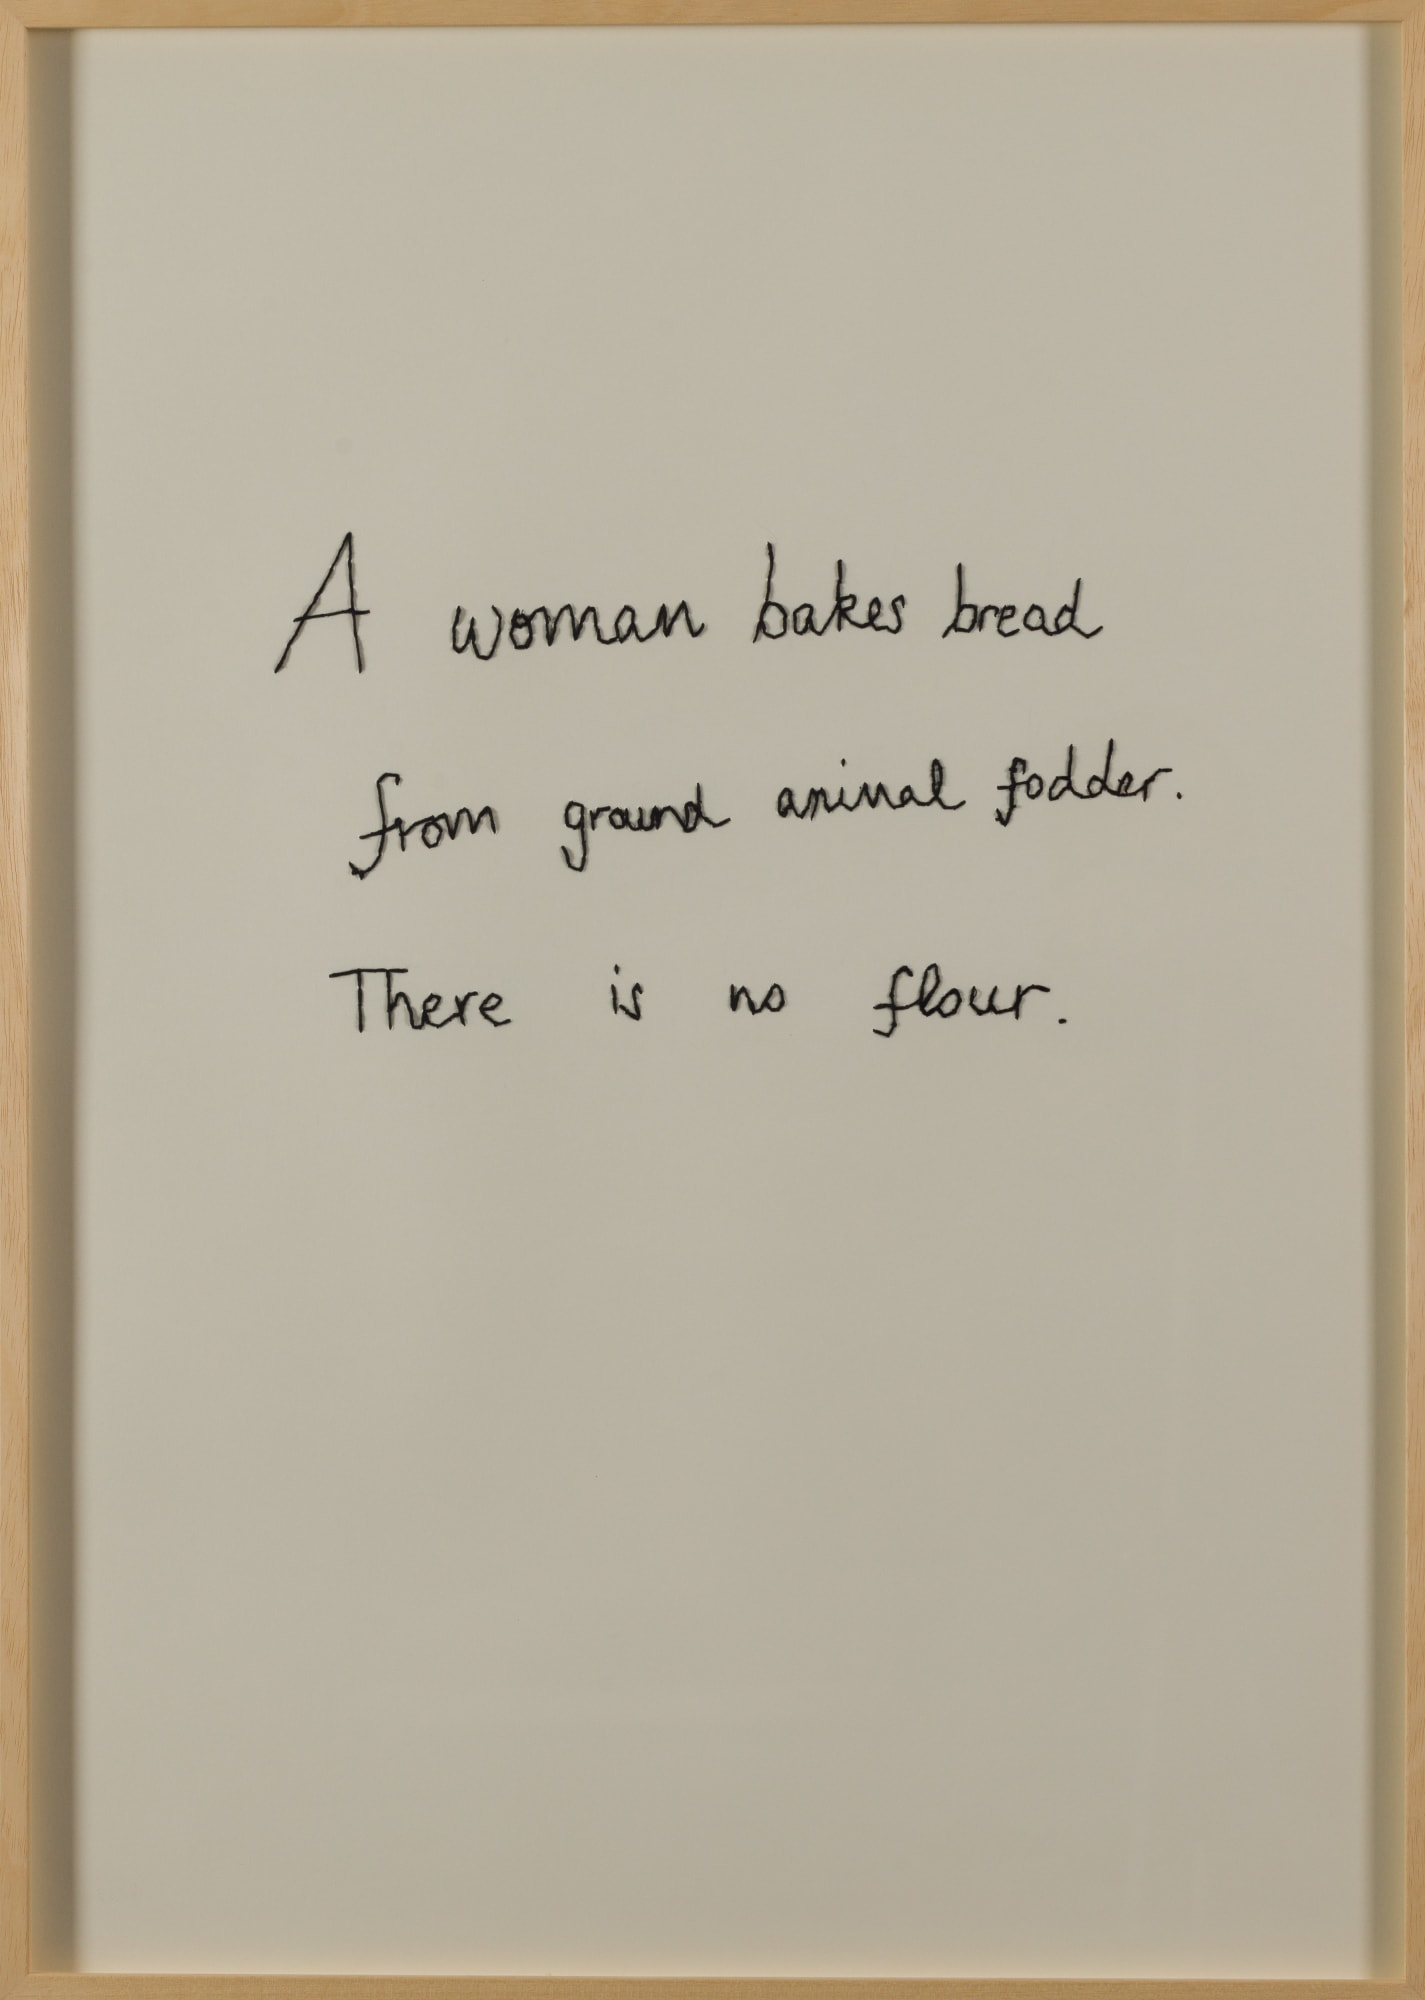 A woman bakes bread
from ground animal fodder.
There is no flour.